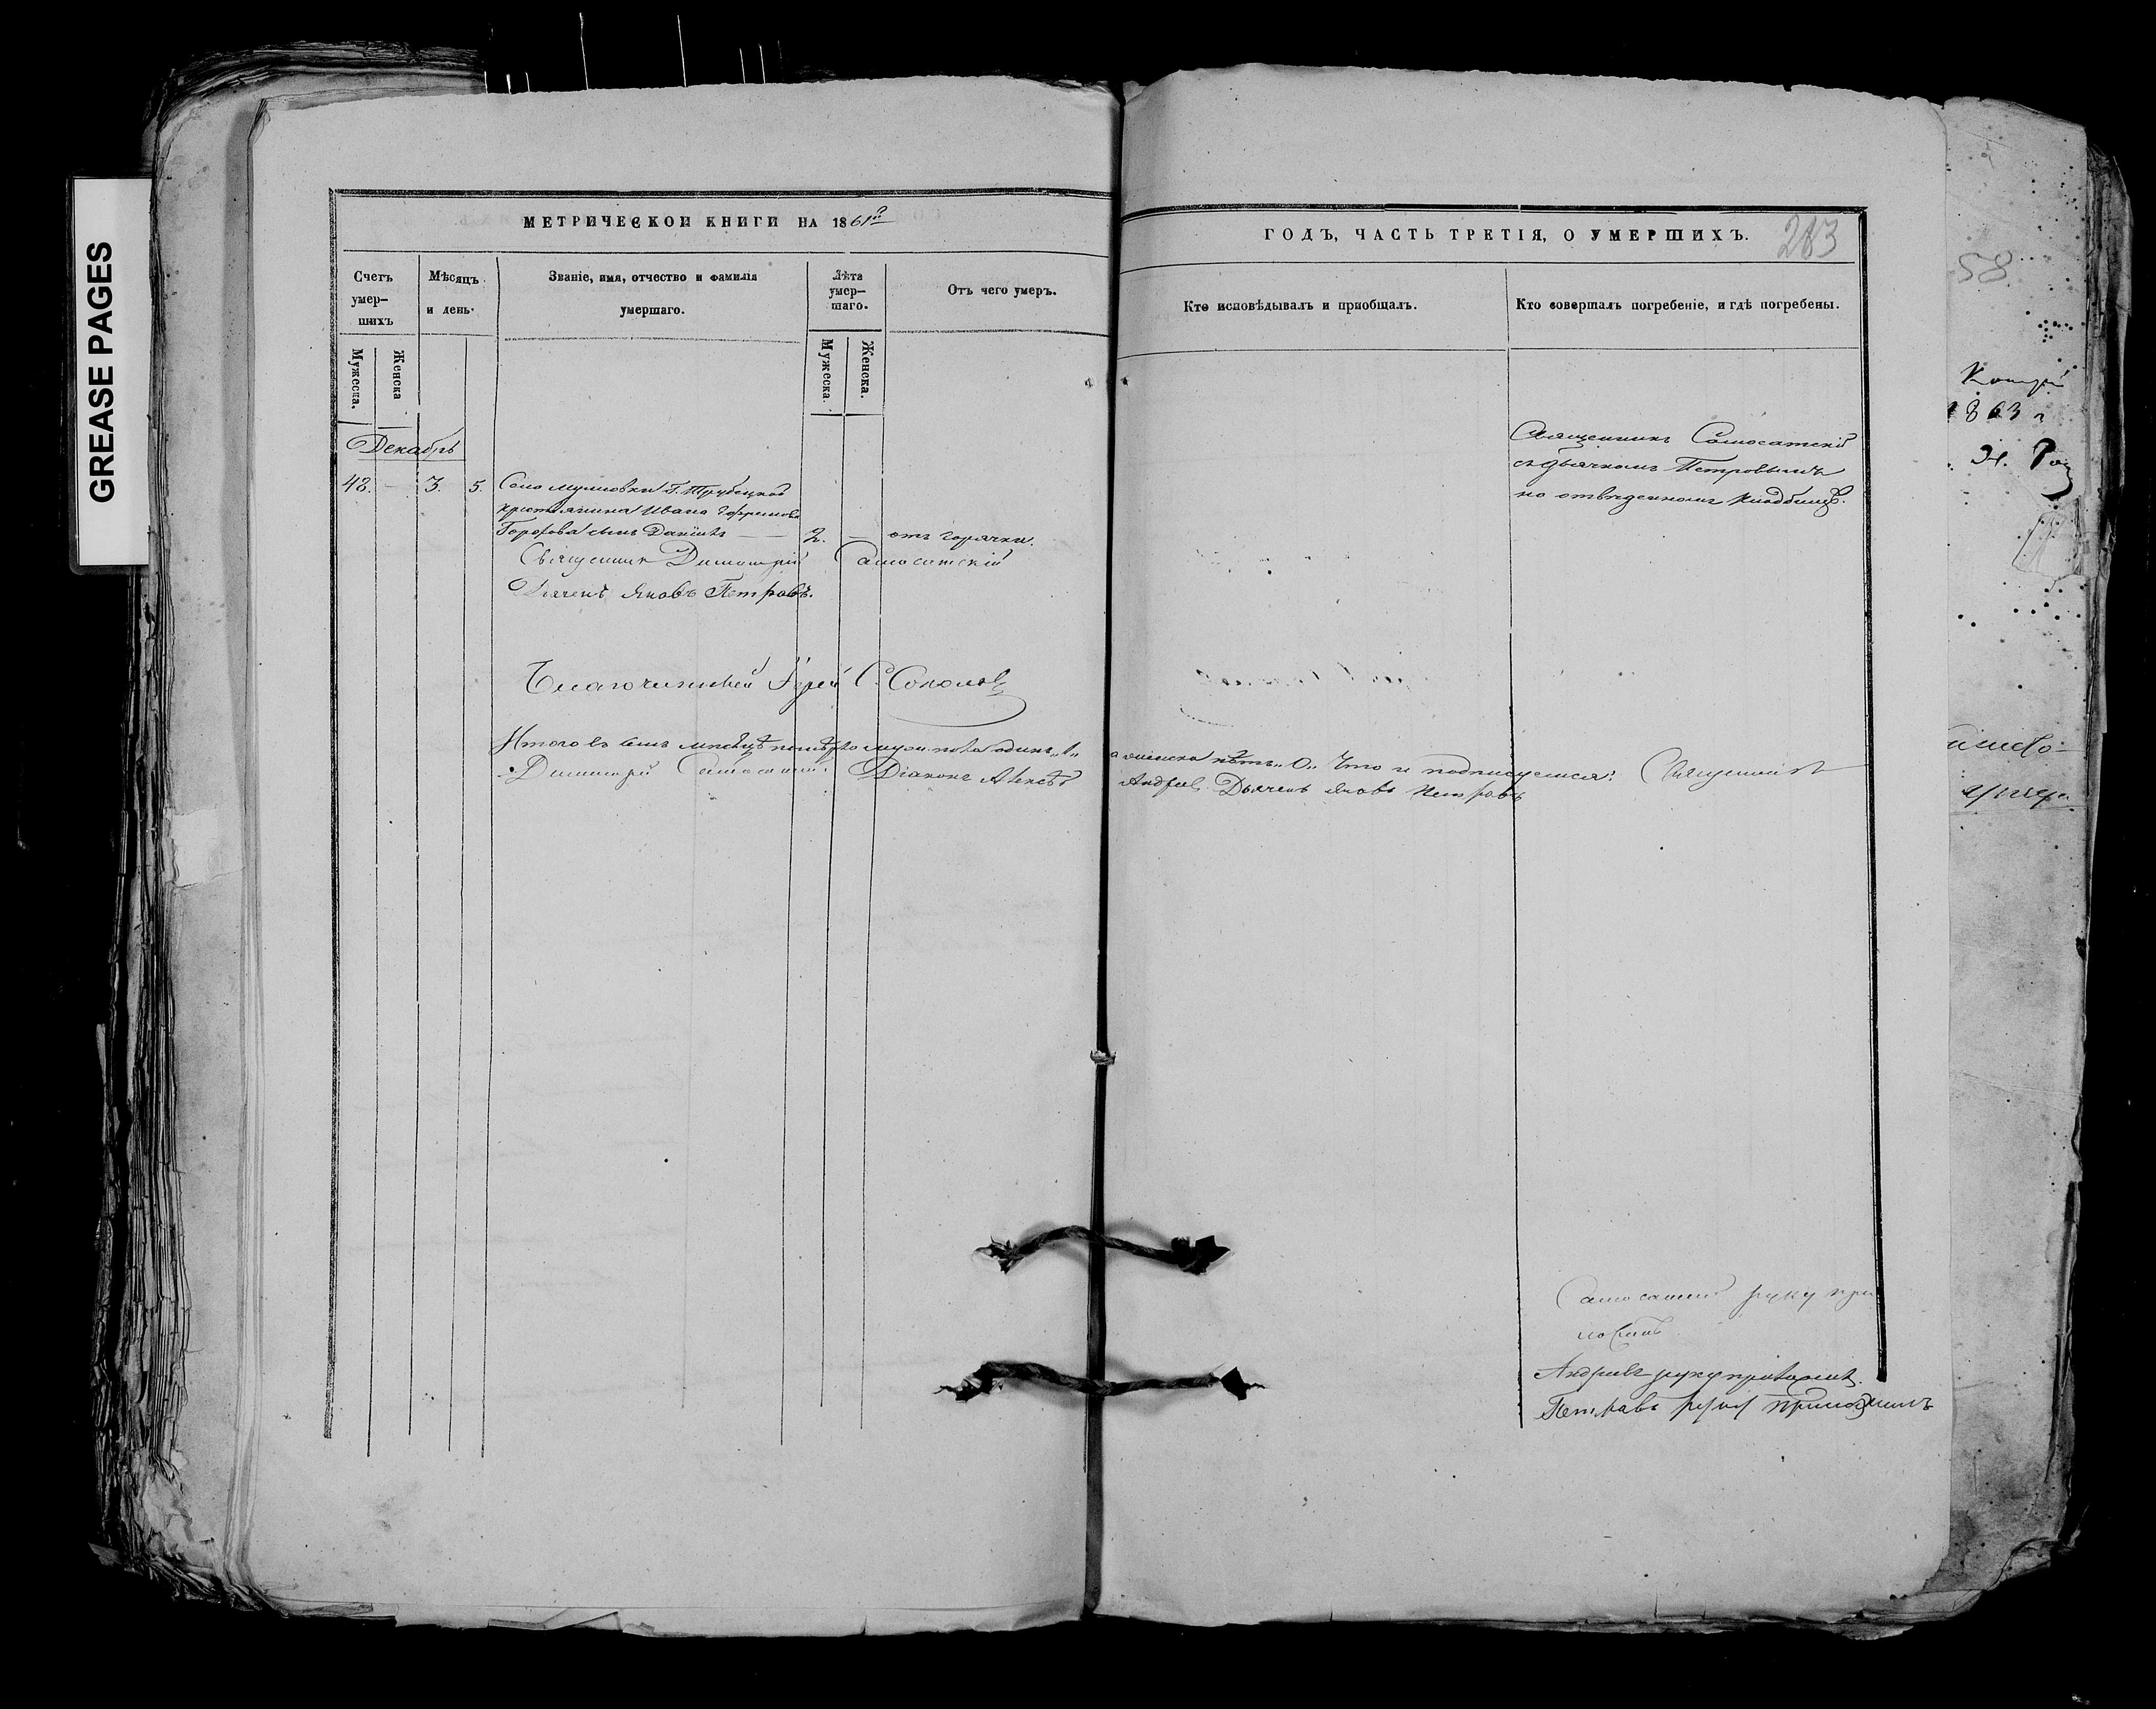 GREASE PAGES
МЕТРИЧЕСКОЙ КНИГИ НА 1861й
Счетъ умер-шихъ
Мѣсяцъ и день.
Званіе, имя, отчество и фамилія умершаго.
Лѣта умер-шаго.
Отъ чего умеръ.
Мужеска.
Женска
Мужеска.
Женска.
Декабрь
43. — 3. 5. Село Г. Трубецкой
крестьянина Ивана
сынъ Даніилъ — 2. — отъ горячки.
Священник Димитрій Самосатскій
Дьячекъ Яковъ Петровъ.
Благочинный Іерей С. Соколов
Итого въ семъ мѣсяцѣ умерло муж. пола одинъ „1„
Димитрій Самосатскій. Діаконъ Алексѣй
ГОДЪ, ЧАСТЬ ТРЕТІЯ, О УМЕРШИХЪ.
283
Кто исповѣдывалъ и пріобщалъ.
Кто совершалъ погребеніе, и гдѣ погребены.
Священникъ Самосатскій
съ дьячкомъ Петровымъ
на отведенномъ кладбищѣ.
а женска нѣтъ „0„ Что и подписуемся: Священникъ
Андреев. Дьячекъ Яковъ Петровъ
Самосатскій руку при
ложилъ
Андреевъ руку приложилъ.
Петровъ руку приложилъ
58
1863 г